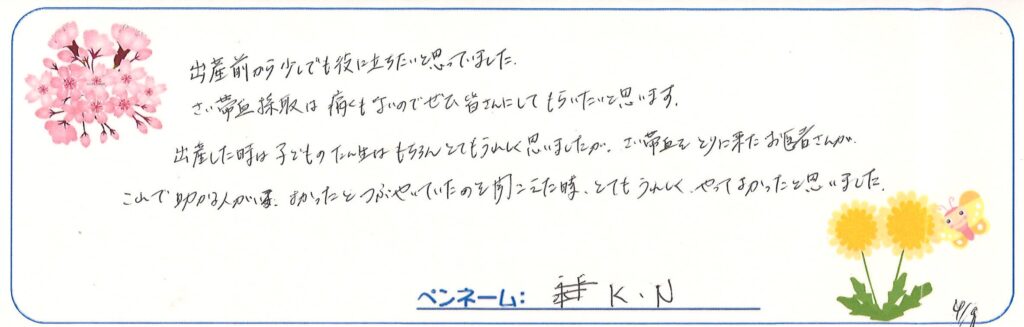 出産前から少しでも役に立ちたいと思っていました.
さい帯血採取は痛くもないのでぜひ皆さんにしてもらいたいと思います.
出産した時は子どものたん生はもちろんとてもうれしく思いましたが、さい帯血をとりに来たお医者さんが、
これで助かる人がいる、よかったとつぶやいていたのを聞こえた時、とてもうれしく、やってよかったと思いました.
ペンネーム: K.N
4/9